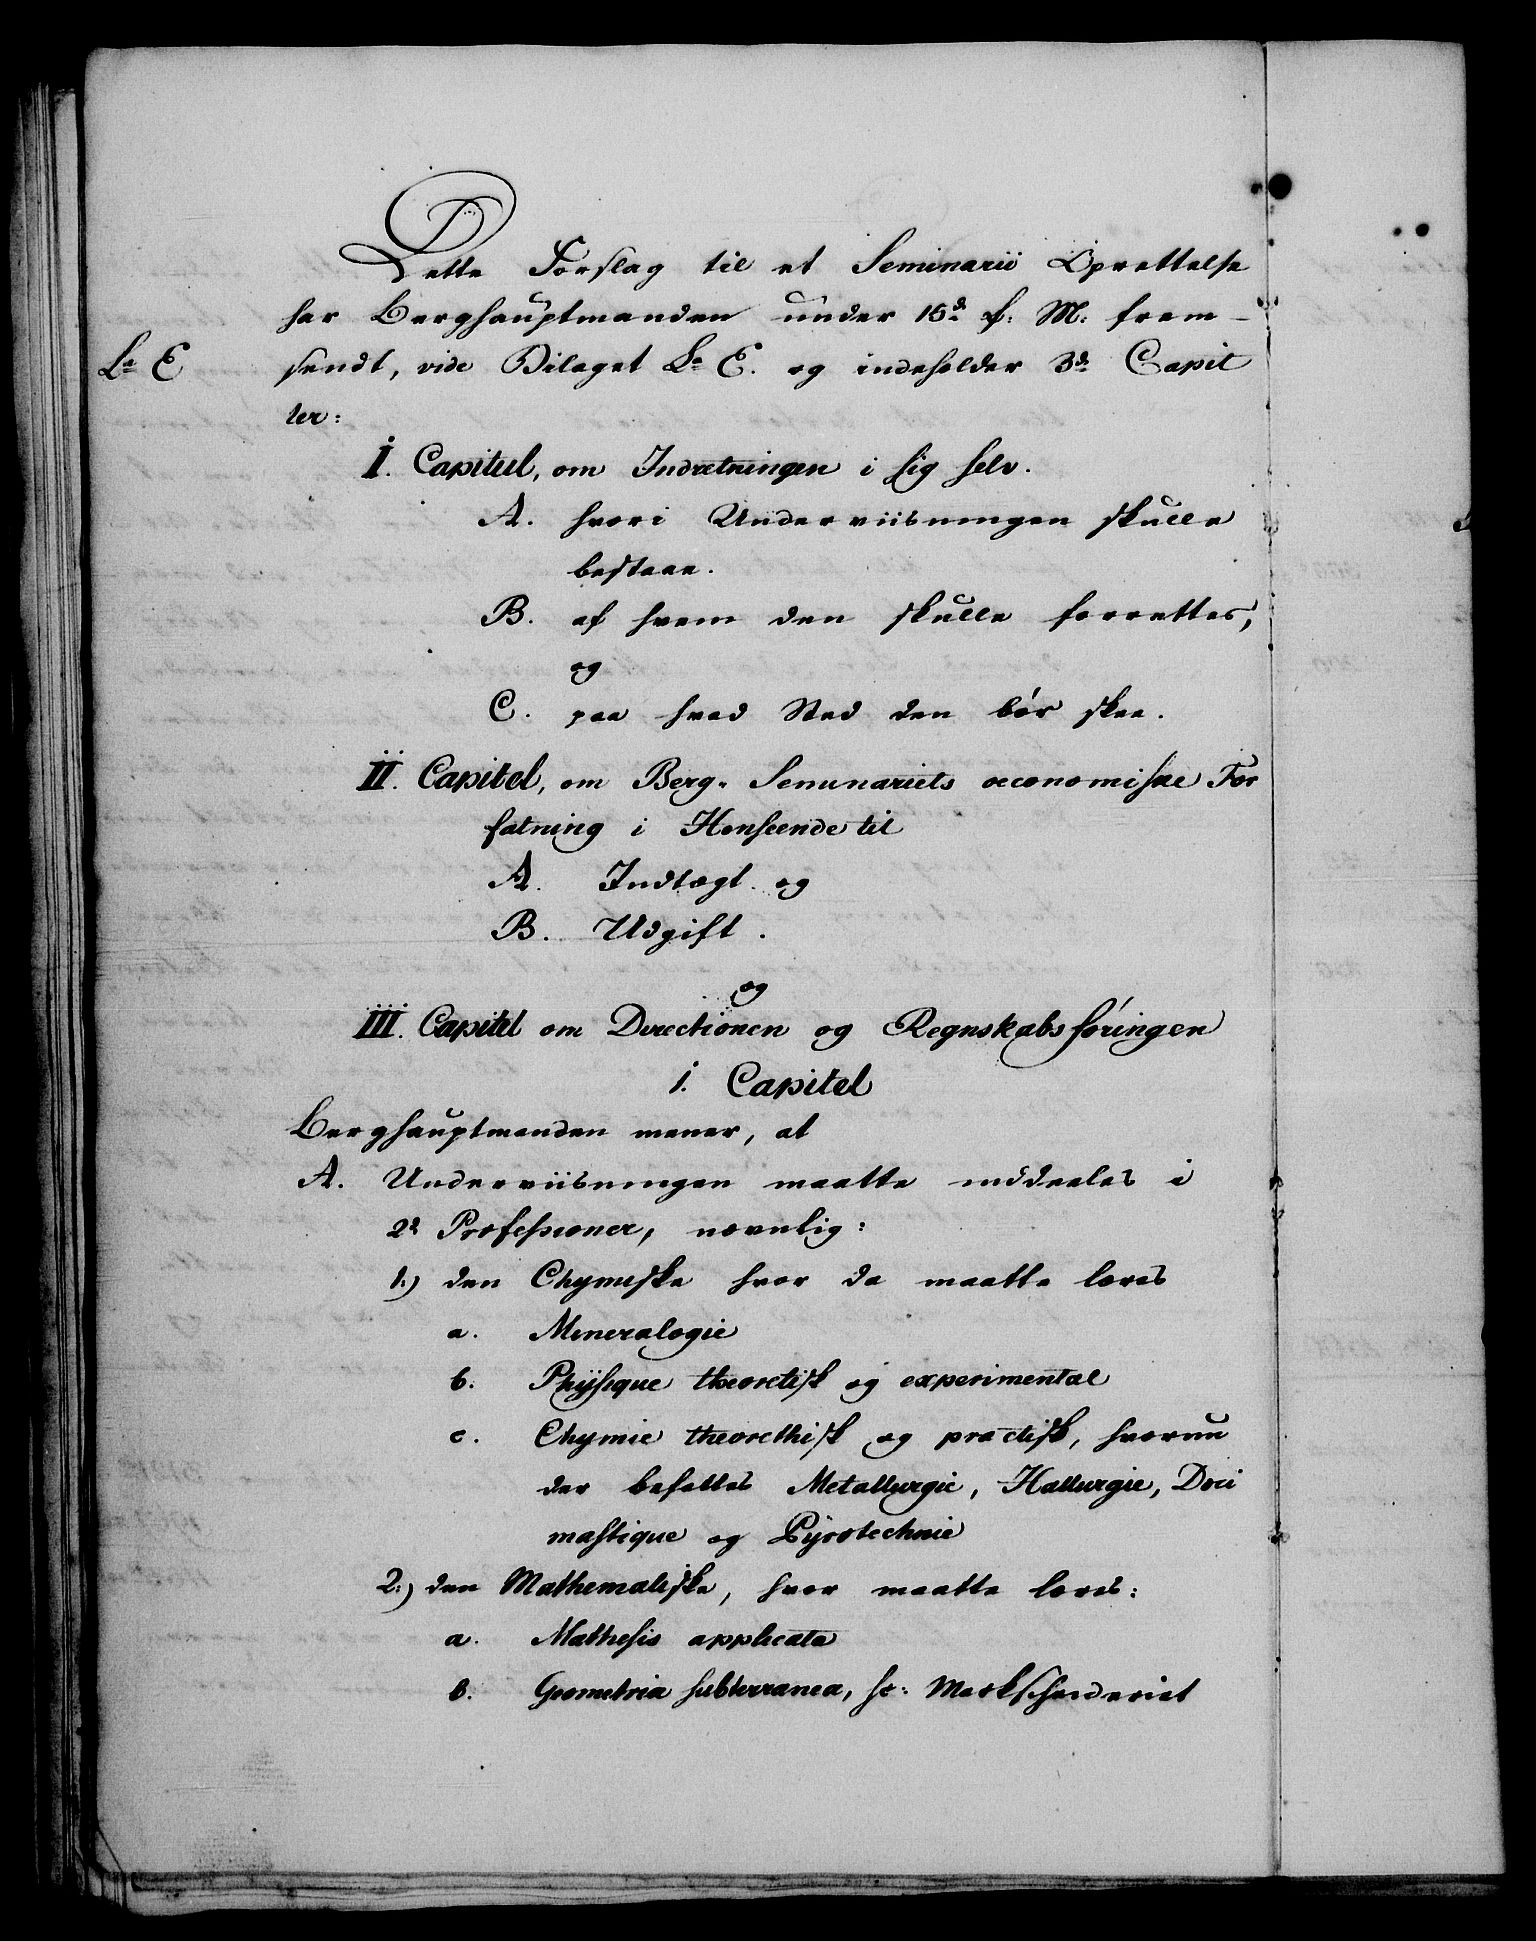 Dette Forslag til et Seminarii Oprettelse
har Berghauptmanden under 15de f: M: frem-
La E
sendt, vide Bilaget La E. og indeholder 3de Capit
ler:
I. Capitul, om Indretningen i sig selv.
A. hvori Underviisningen skulle
bestaae.
B. af hvem den skulle forrettes,
og
C. paa hvad Sted den bör skee.
II. Capitel, om Berg-Seminariets oeconomiske For
fatning i Henseende til
A. Indtægt og
B. Udgift.
og
III. Capitel om Directionen og Regnskabsföringen
1. Capitel
Berghauptmanden mener, at
A. Underviisningen maatte inddeeles i
2de Professioner, nævnlig:
1.) den Chymiske hvor da maatte læres
a. Mineralogie
b. Physique theoretisk og experimental
c. Chymie theorethisk og practisk, hvorun
der befattes Metallurgie, Hallurgie, Doci
mastique og Pyrotechnie
2.) den Mathematiske, hvor maatte læres:
a. Mathesis applicata
b. Geometria subterranea, sc: Markscheideriet